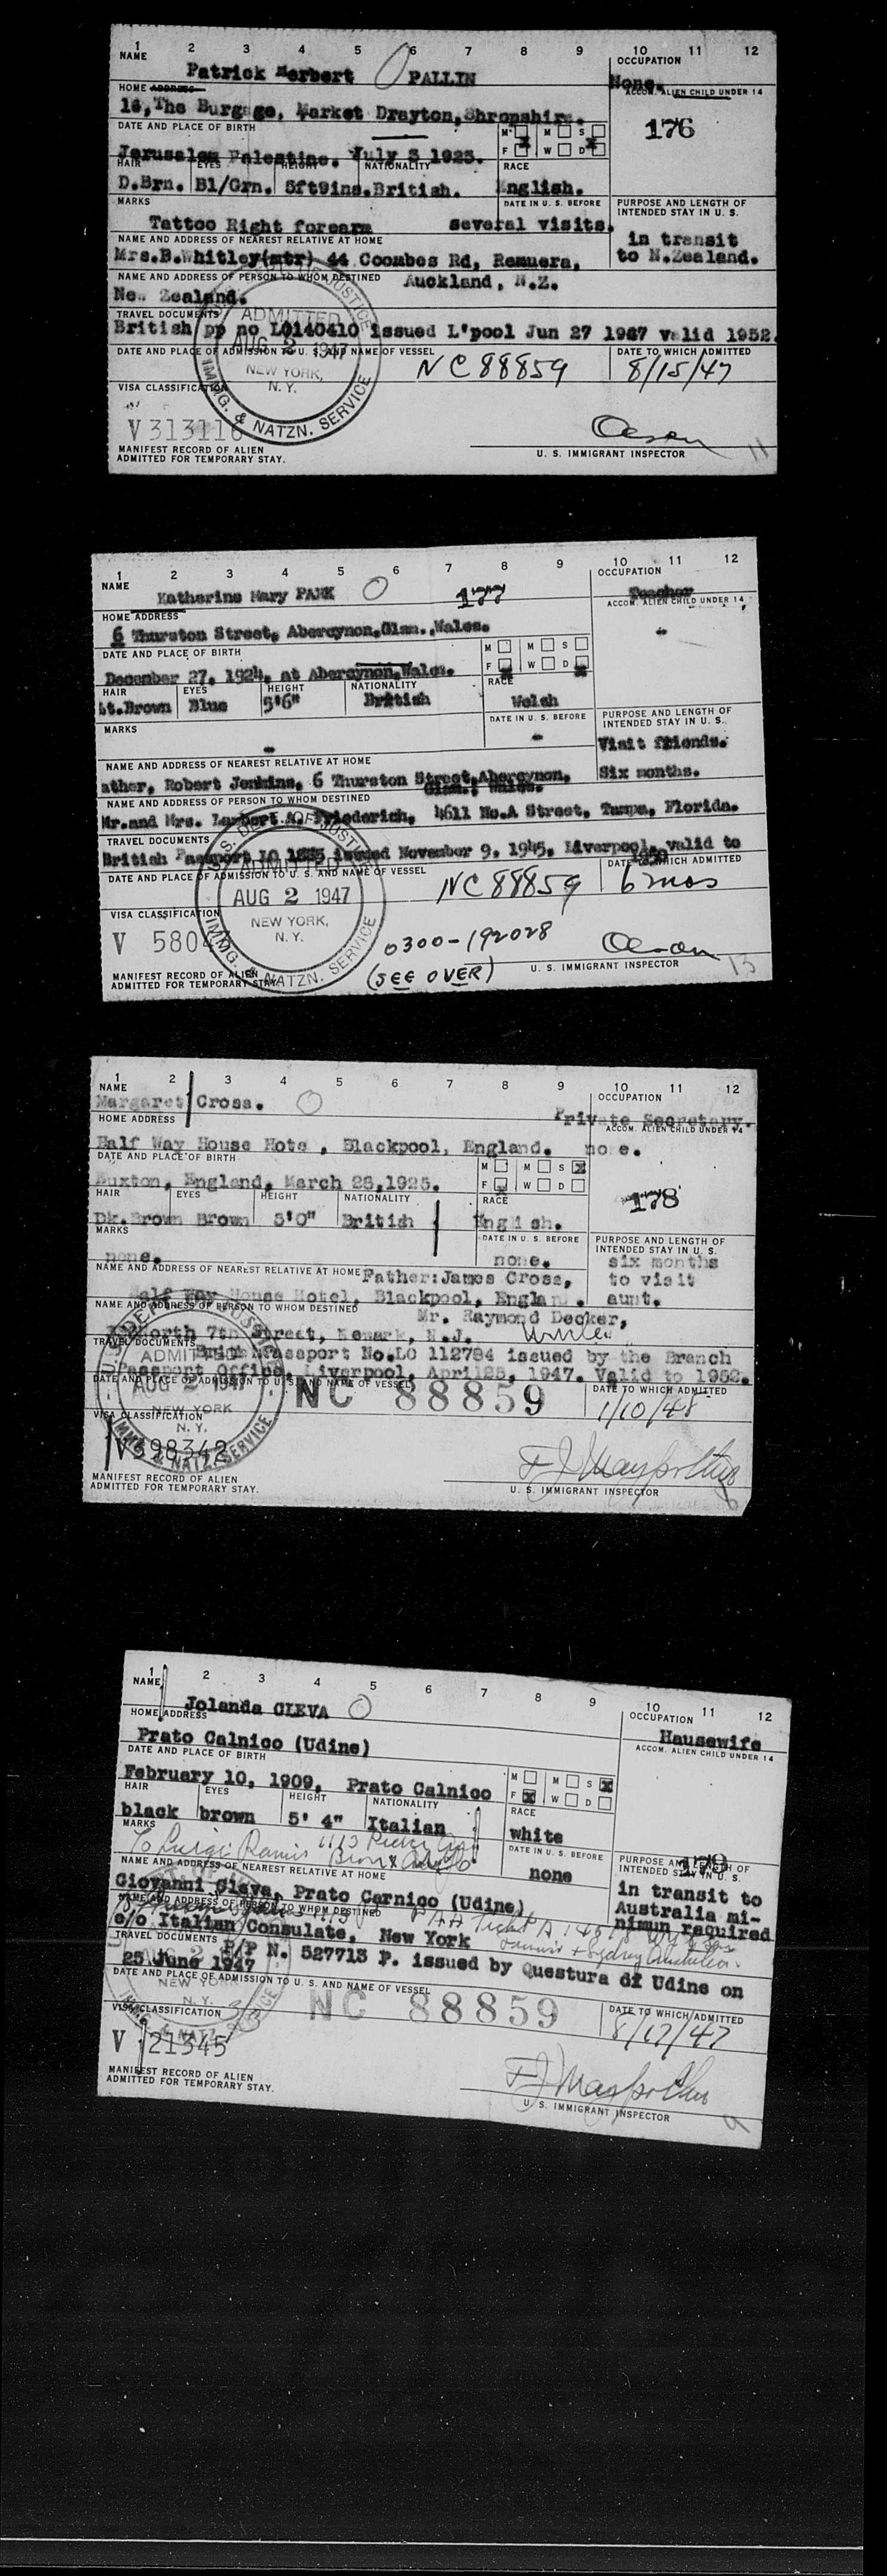 1 2 3 4 5 6 7 8 9 10 11 12
NAME OCCUPATION
Patrick Herbert PALLIN None.
HOME ADDRESS ACCOM. ALIEN CHILD UNDER 14
16, The Burgage, Market Drayton, Shropshire. 176
DATE AND PLACE OF BIRTH M M S
F W D
Jerusalem Palestine. July 3 1923.
HAIR EYES HEIGHT NATIONALITY RACE
D.Brn. Bl/Grn. 5ft9ins. British. English.
MARKS DATE IN U. S. BEFORE PURPOSE AND LENGTH OF INTENDED STAY IN U. S.
Tattoo Right forearm several visits. in transit
NAME AND ADDRESS OF NEAREST RELATIVE AT HOME to N.Zealand.
Mrs.B.Whitley(mtr) 44 Coombes Rd, Remuera,
NAME AND ADDRESS OF PERSON TO WHOM DESTINED Auckland, N.Z.
New Zealand.
TRAVEL DOCUMENTS
British pp no L0140410 issued L'pool Jun 27 1947 valid 1952.
DATE AND PLACE OF ADMISSION TO U. S. AND NAME OF VESSEL DATE TO WHICH ADMITTED
ADMITTED AUG 2 1947 NEW YORK, N. Y. IMMG. & NATZN. SERVICE
NC 88859 8/15/47
VISA CLASSIFICATION
V 313116
MANIFEST RECORD OF ALIEN
ADMITTED FOR TEMPORARY STAY. U. S. IMMIGRANT INSPECTOR 11
1 2 3 4 5 6 7 8 9 10 11 12
NAME OCCUPATION
Katherine Mary PARK Teacher
HOME ADDRESS ACCOM. ALIEN CHILD UNDER 14
6 Thurston Street, Abercynon, Glam., Wales. -
DATE AND PLACE OF BIRTH M M S
F W D
December 27, 1924, at Abercynon, Wales.
HAIR EYES HEIGHT NATIONALITY RACE
Lt.Brown Blue 5'6" British Welsh
MARKS DATE IN U. S. BEFORE PURPOSE AND LENGTH OF INTENDED STAY IN U. S.
- - Visit friends.
NAME AND ADDRESS OF NEAREST RELATIVE AT HOME Six months.
ather, Robert Jenkins, 6 Thurston Street, Abercynon,
Glam., Wales.
NAME AND ADDRESS OF PERSON TO WHOM DESTINED
Mr. and Mrs. Lambert A. Friederich, 4611 No.A Street, Tampa, Florida.
TRAVEL DOCUMENTS
British Passport issued November 9, 1945, Liverpool, valid to
DATE AND PLACE OF ADMISSION TO U. S. AND NAME OF VESSEL DATE TO WHICH ADMITTED
AUG 2 1947 NEW YORK, N. Y. IMMG. & NATZN. SERVICE
NC 88859 6 mos
VISA CLASSIFICATION
V 5804
0300-192028
(SEE OVER)
MANIFEST RECORD OF ALIEN
ADMITTED FOR TEMPORARY STAY U. S. IMMIGRANT INSPECTOR 13
1 2 3 4 5 6 7 8 9 10 11 12
NAME OCCUPATION
Margaret Cross. Private Secretary.
HOME ADDRESS ACCOM. ALIEN CHILD UNDER 14
Half Way House Hote , Blackpool, England. no e.
DATE AND PLACE OF BIRTH M M S
F W D
Buxton, England, March 28, 1925. 178
HAIR EYES HEIGHT NATIONALITY RACE
Dk.Brown Brown 5'0" British Eng ish.
MARKS DATE IN U. S. BEFORE PURPOSE AND LENGTH OF INTENDED STAY IN U. S.
none. none. six months
NAME AND ADDRESS OF NEAREST RELATIVE AT HOME Father: James Cross, to visit
Half Way House Hotel, Blackpool, Englan . aunt.
NAME AND ADDRESS OF PERSON TO WHOM DESTINED Mr. Raymond Decker,
North 7th Street, Newark, N.J. Uncle
TRAVEL DOCUMENTS
Passport No.LO 112784 issued by the Branch
Passport Office, Liverpool, April25, 1947. Valid to 1952.
DATE AND PLACE OF ADMISSION TO U. S. AND NAME OF VESSEL DATE TO WHICH ADMITTED
ADMITTED AUG 2 1947 NEW YORK N. Y. IMMG. & NATZN. SERVICE
NC 88859 1/10/48
VISA CLASSIFICATION
V598342
MANIFEST RECORD OF ALIEN
ADMITTED FOR TEMPORARY STAY. U. S. IMMIGRANT INSPECTOR
1 2 3 4 5 6 7 8 9 10 11 12
NAME OCCUPATION
Jolanda CLEVA Hausewife
HOME ADDRESS ACCOM. ALIEN CHILD UNDER 14
Prato Calnico (Udine)
DATE AND PLACE OF BIRTH M M S
F W D
February 10, 1909, Prato Calnico
HAIR EYES HEIGHT NATIONALITY RACE
black brown 5' 4" Italian white
MARKS DATE IN U. S. BEFORE PURPOSE AND LENGTH OF INTENDED STAY IN U. S.
none 179
NAME AND ADDRESS OF NEAREST RELATIVE AT HOME in transit to
Giovanni Cleva, Prato Carnico (Udine) Australia mi-
NAME AND ADDRESS OF PERSON TO WHOM DESTINED nimun required
c/o Italian Consulate, New York
TRAVEL DOCUMENTS P/P N. 527713 P. issued by Questura di Udine on
25 June 1947
DATE AND PLACE OF ADMISSION TO U. S. AND NAME OF VESSEL DATE TO WHICH ADMITTED
NEW YORK N. Y.
NC 88859 8/17/47
VISA CLASSIFICATION
V 21545
MANIFEST RECORD OF ALIEN
ADMITTED FOR TEMPORARY STAY. U. S. IMMIGRANT INSPECTOR 9